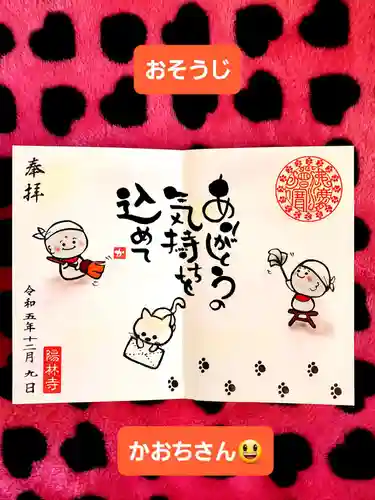 おそうじ
ありがとうの
気持ちを
込めて
か
奉拝
令和五年十二月九日
陽林寺
かおちさん😃